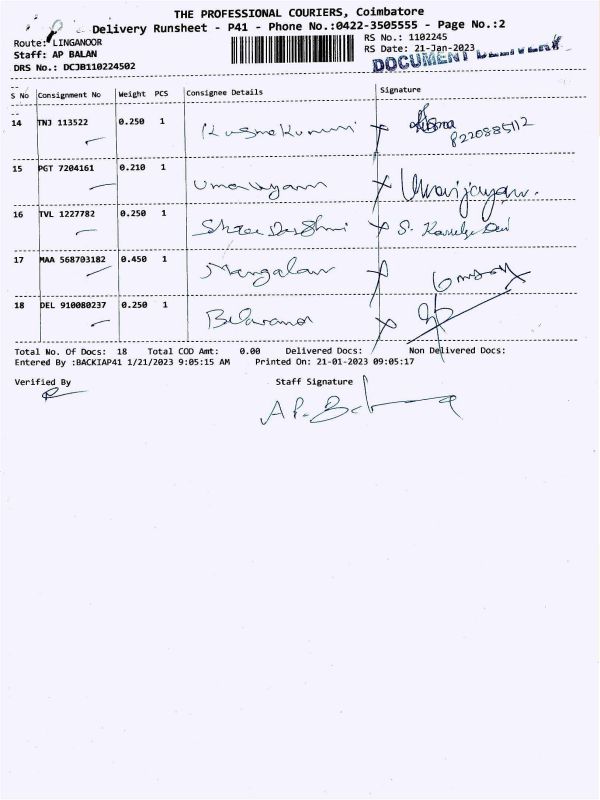 THE PROFESSIONAL COURIERS, Coimbatore
Delivery Runsheet - P41 - Phone No.:0422-3505555 - Page No.:2
Route: LINGANOOR
RS No.: 1102245
Staff: AP BALAN
RS Date: 21-Jan-2023
DRS No.: DCJB110224502
DOCUMENT DELIVERY
S No Consignment No Weight PCS Consignee Details Signature
14 TNJ 113522 0.250 1
8220885112
15 PGT 7204161 0.210 1 Umavijayan Umavijayan.
16 TVL 1227782 0.250 1 S.
17 MAA 568703182 0.450 1 Mangalam
18 DEL 910080237 0.250 1
Total No. Of Docs: 18 Total COD Amt: 0.00 Delivered Docs: Non Delivered Docs:
Entered By :BACKIAP41 1/21/2023 9:05:15 AM Printed On: 21-01-2023 09:05:17
Verified By Staff Signature
A P.